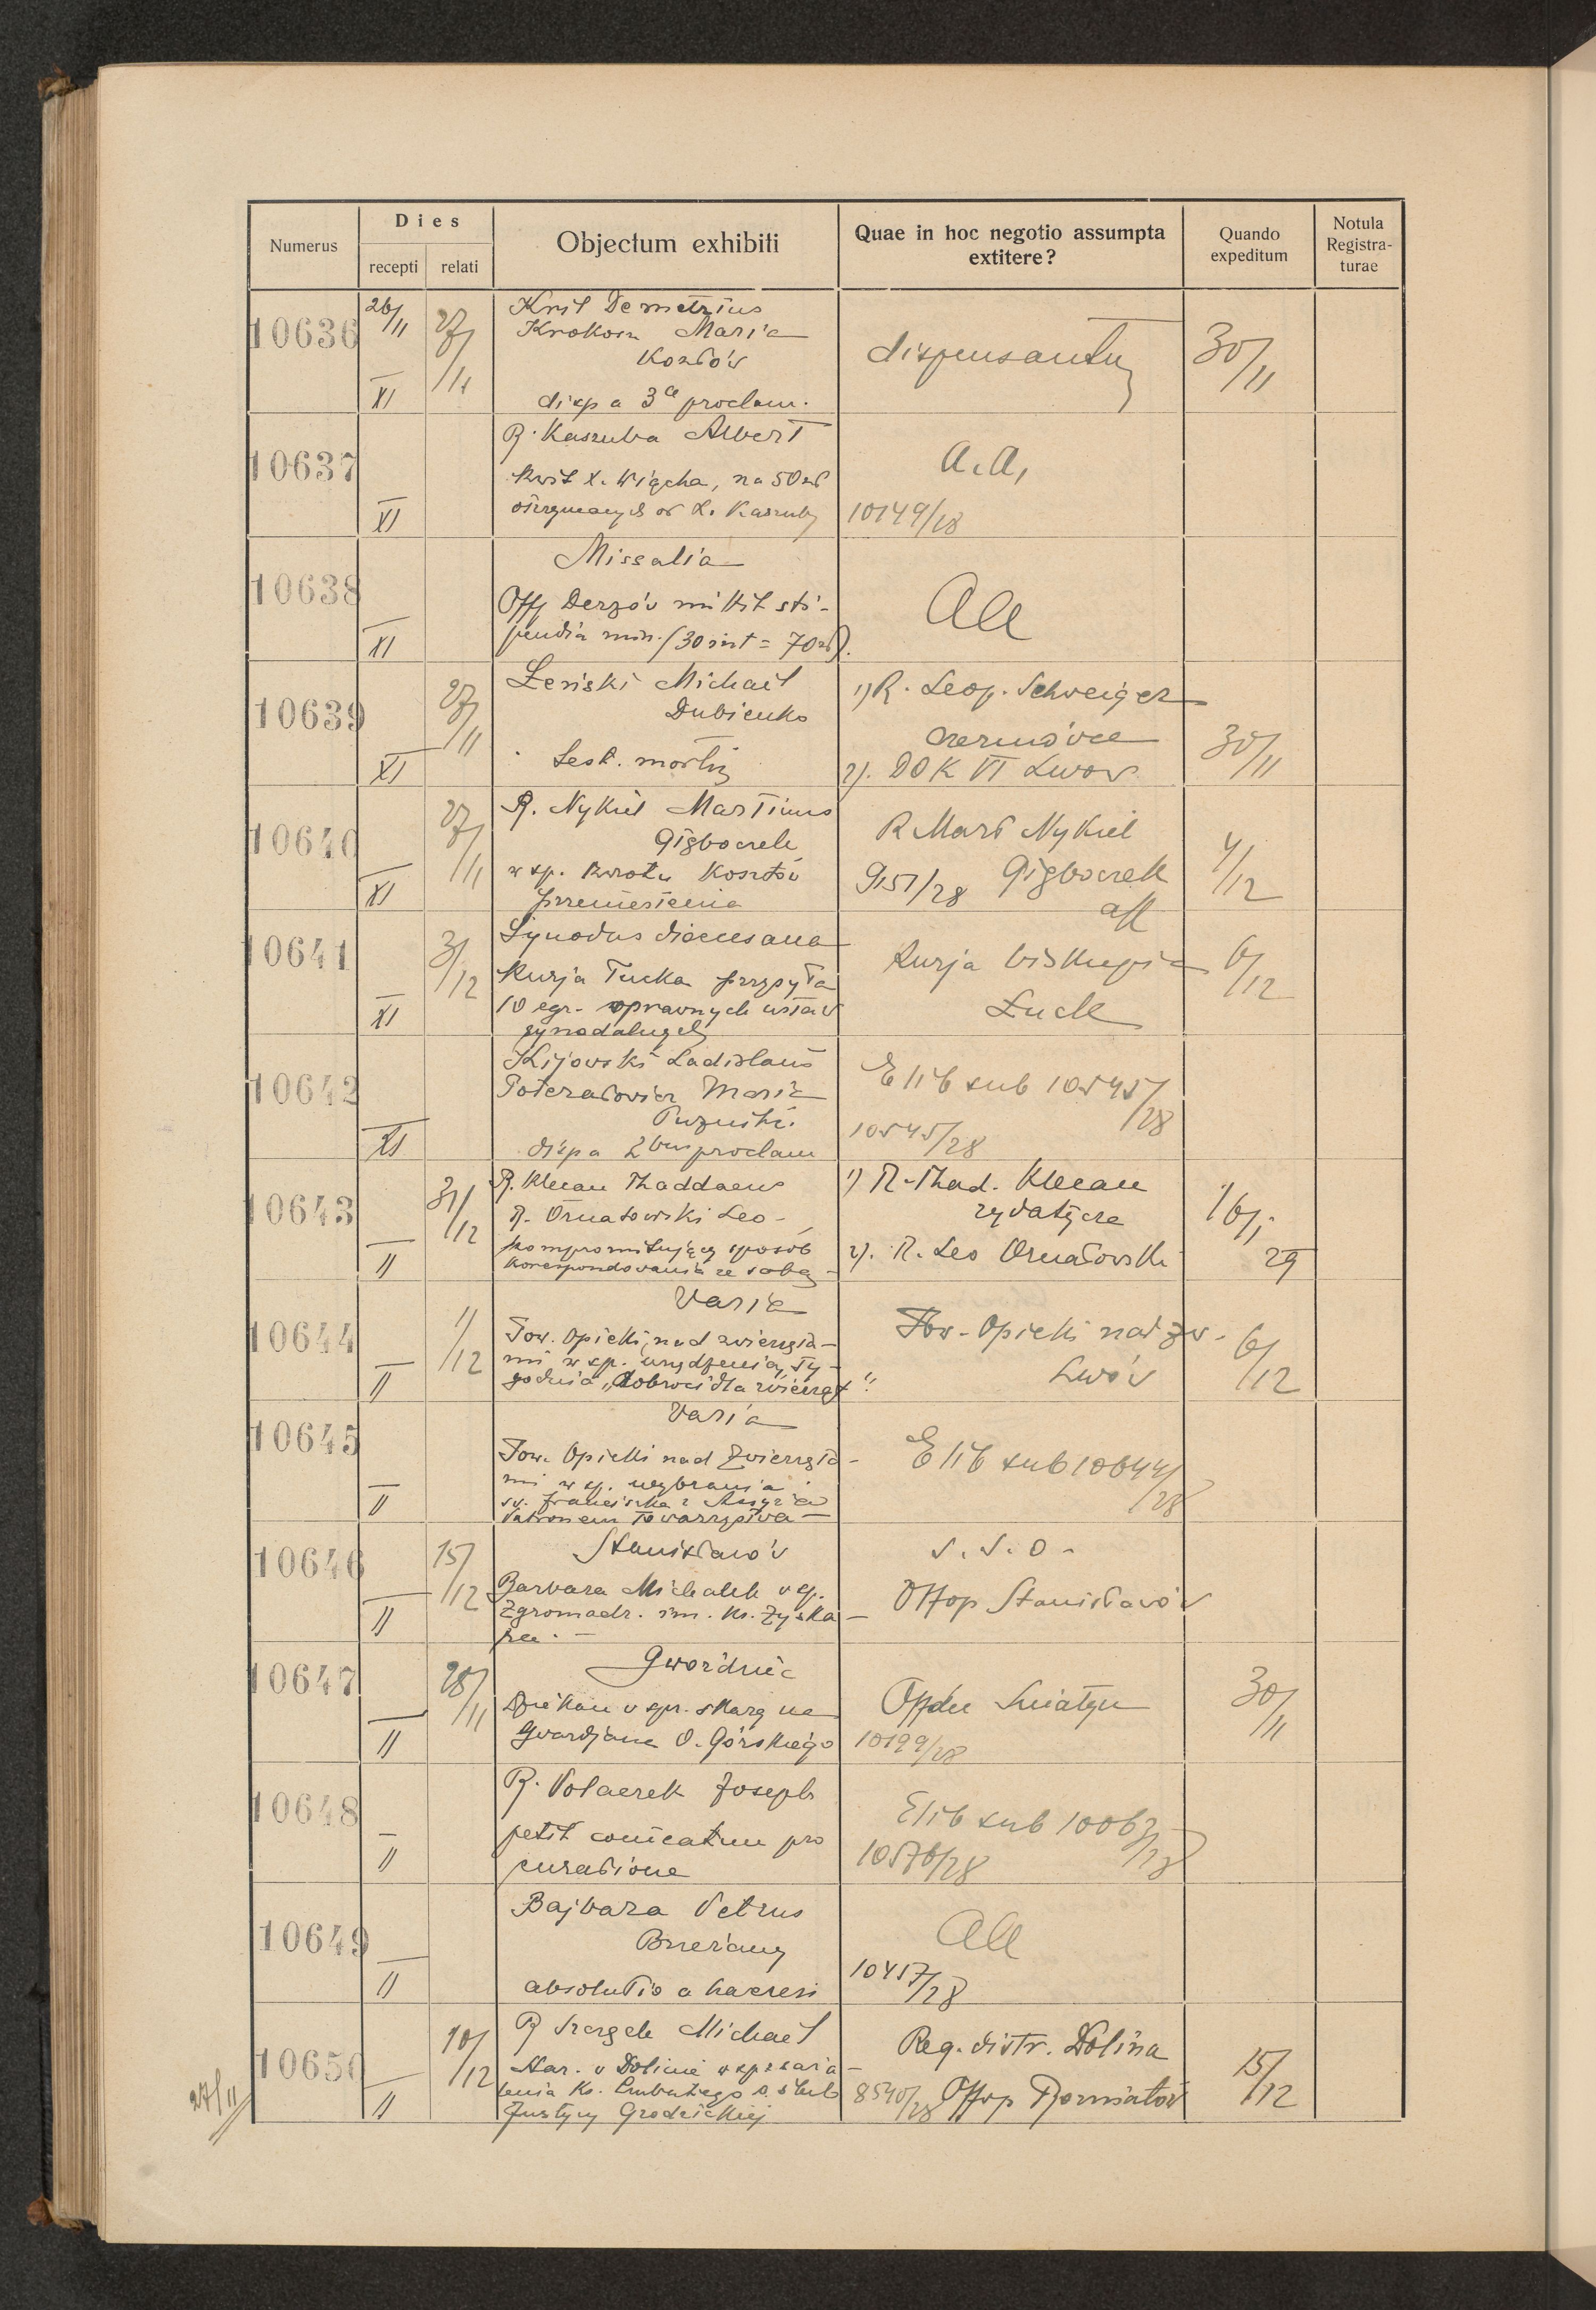 Numerus
Dies
recepti
relati
Objectum exhibiti
Quae in hoc negotio assumpta
extitere?
Quando
expeditum
Notula
Registra-
turae
10636
26/11
XI
27/11
Kril Demetrius
Maria
Kozłów
disp a 3a proclam.
dispensantur
30/11
10637
XI
R. Kaszuba Albert
kwit X. Wiącha, na 50 zł
otrzymanych od X. Kaszuby
a.a,
10149/28
10638
XI
Missalia
Offp Derzów mittit sti-
pendia min. (30 int = 70 zł).
aa
10639
XI
27/11
Łeński Michael
Dubienko
test. mortis
1) R. Leop. Schweiger
Czerniowce
2). DOK VI Lwów
30/11
10640
XI
27/11
R. Nykiel Martinus
w sp. zwrotu kosztów
przeniesienia
R Mart Nykiel
9151/28
4/12
10641
XI
3/12
Synodus dioecesana
Kurja Łucka przysyła
10 egz. oprawnych ustaw
synodalnych
Kurja biskupia
Łuck
6/12
10642
XI
Kijowski Ladislaus
Maria
disp a 2bus proclam
Elib sub 10545/28
10545/28
10643
II
31/12
R. Klecan Thaddaeus
R. Ornatowski Leo
kompromitujący sposób
korespondowania ze sobą
1) R. Thad. Klecan
Rydatycze
2). R. Leo Ornatowski
16/1
29
10644
II
1/12
Varia
Tow. Opieki nad zwierzęta-
mi w sp. urządzenia ty-
godnia „dobroci dla zwierząt"
Tow. Opieki nad zw.
Lwów
6/12
10645
II
Varia
Tow. Opieki nad Zwierzęta-
mi w sp. wybrania
św. Franciszka z Assyżu
Patronem Towarzystwa
Elib sub 10644/28
10646
II
15/12
Stanisławów
Barbara Michalek w sp.
Zgromadz. im. Ks. Zyska
S.S.O.
Offop Stanisławów
10647
II
28/11
Gwoździec
Dziekan w spr. skarg na
Gwardjana O. Górskiego
Offdec Śniatyn
10199/28
30/11
10648
II
R. Polaczek Joseph
petit comeatum pro
curatione
Elib sub 10063/28
10576/28
10649
II
Bajbara Petrus
Brzeżany
absolutio a haeresi
aa
10457/28
10650
27/11
II
10/12
R Michael
Nar. w Dolinie w sp. zaża
lenia Ks. o ślub
Justyny Grodzickiej
Reg. distr. Dolina
8540/28 Offop Rożniatów
15/12